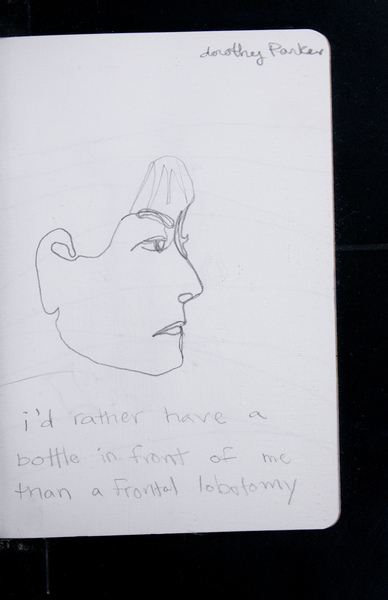 dorothy Parker
i'd rather have a
bottle in front of me
than a frontal lobotomy